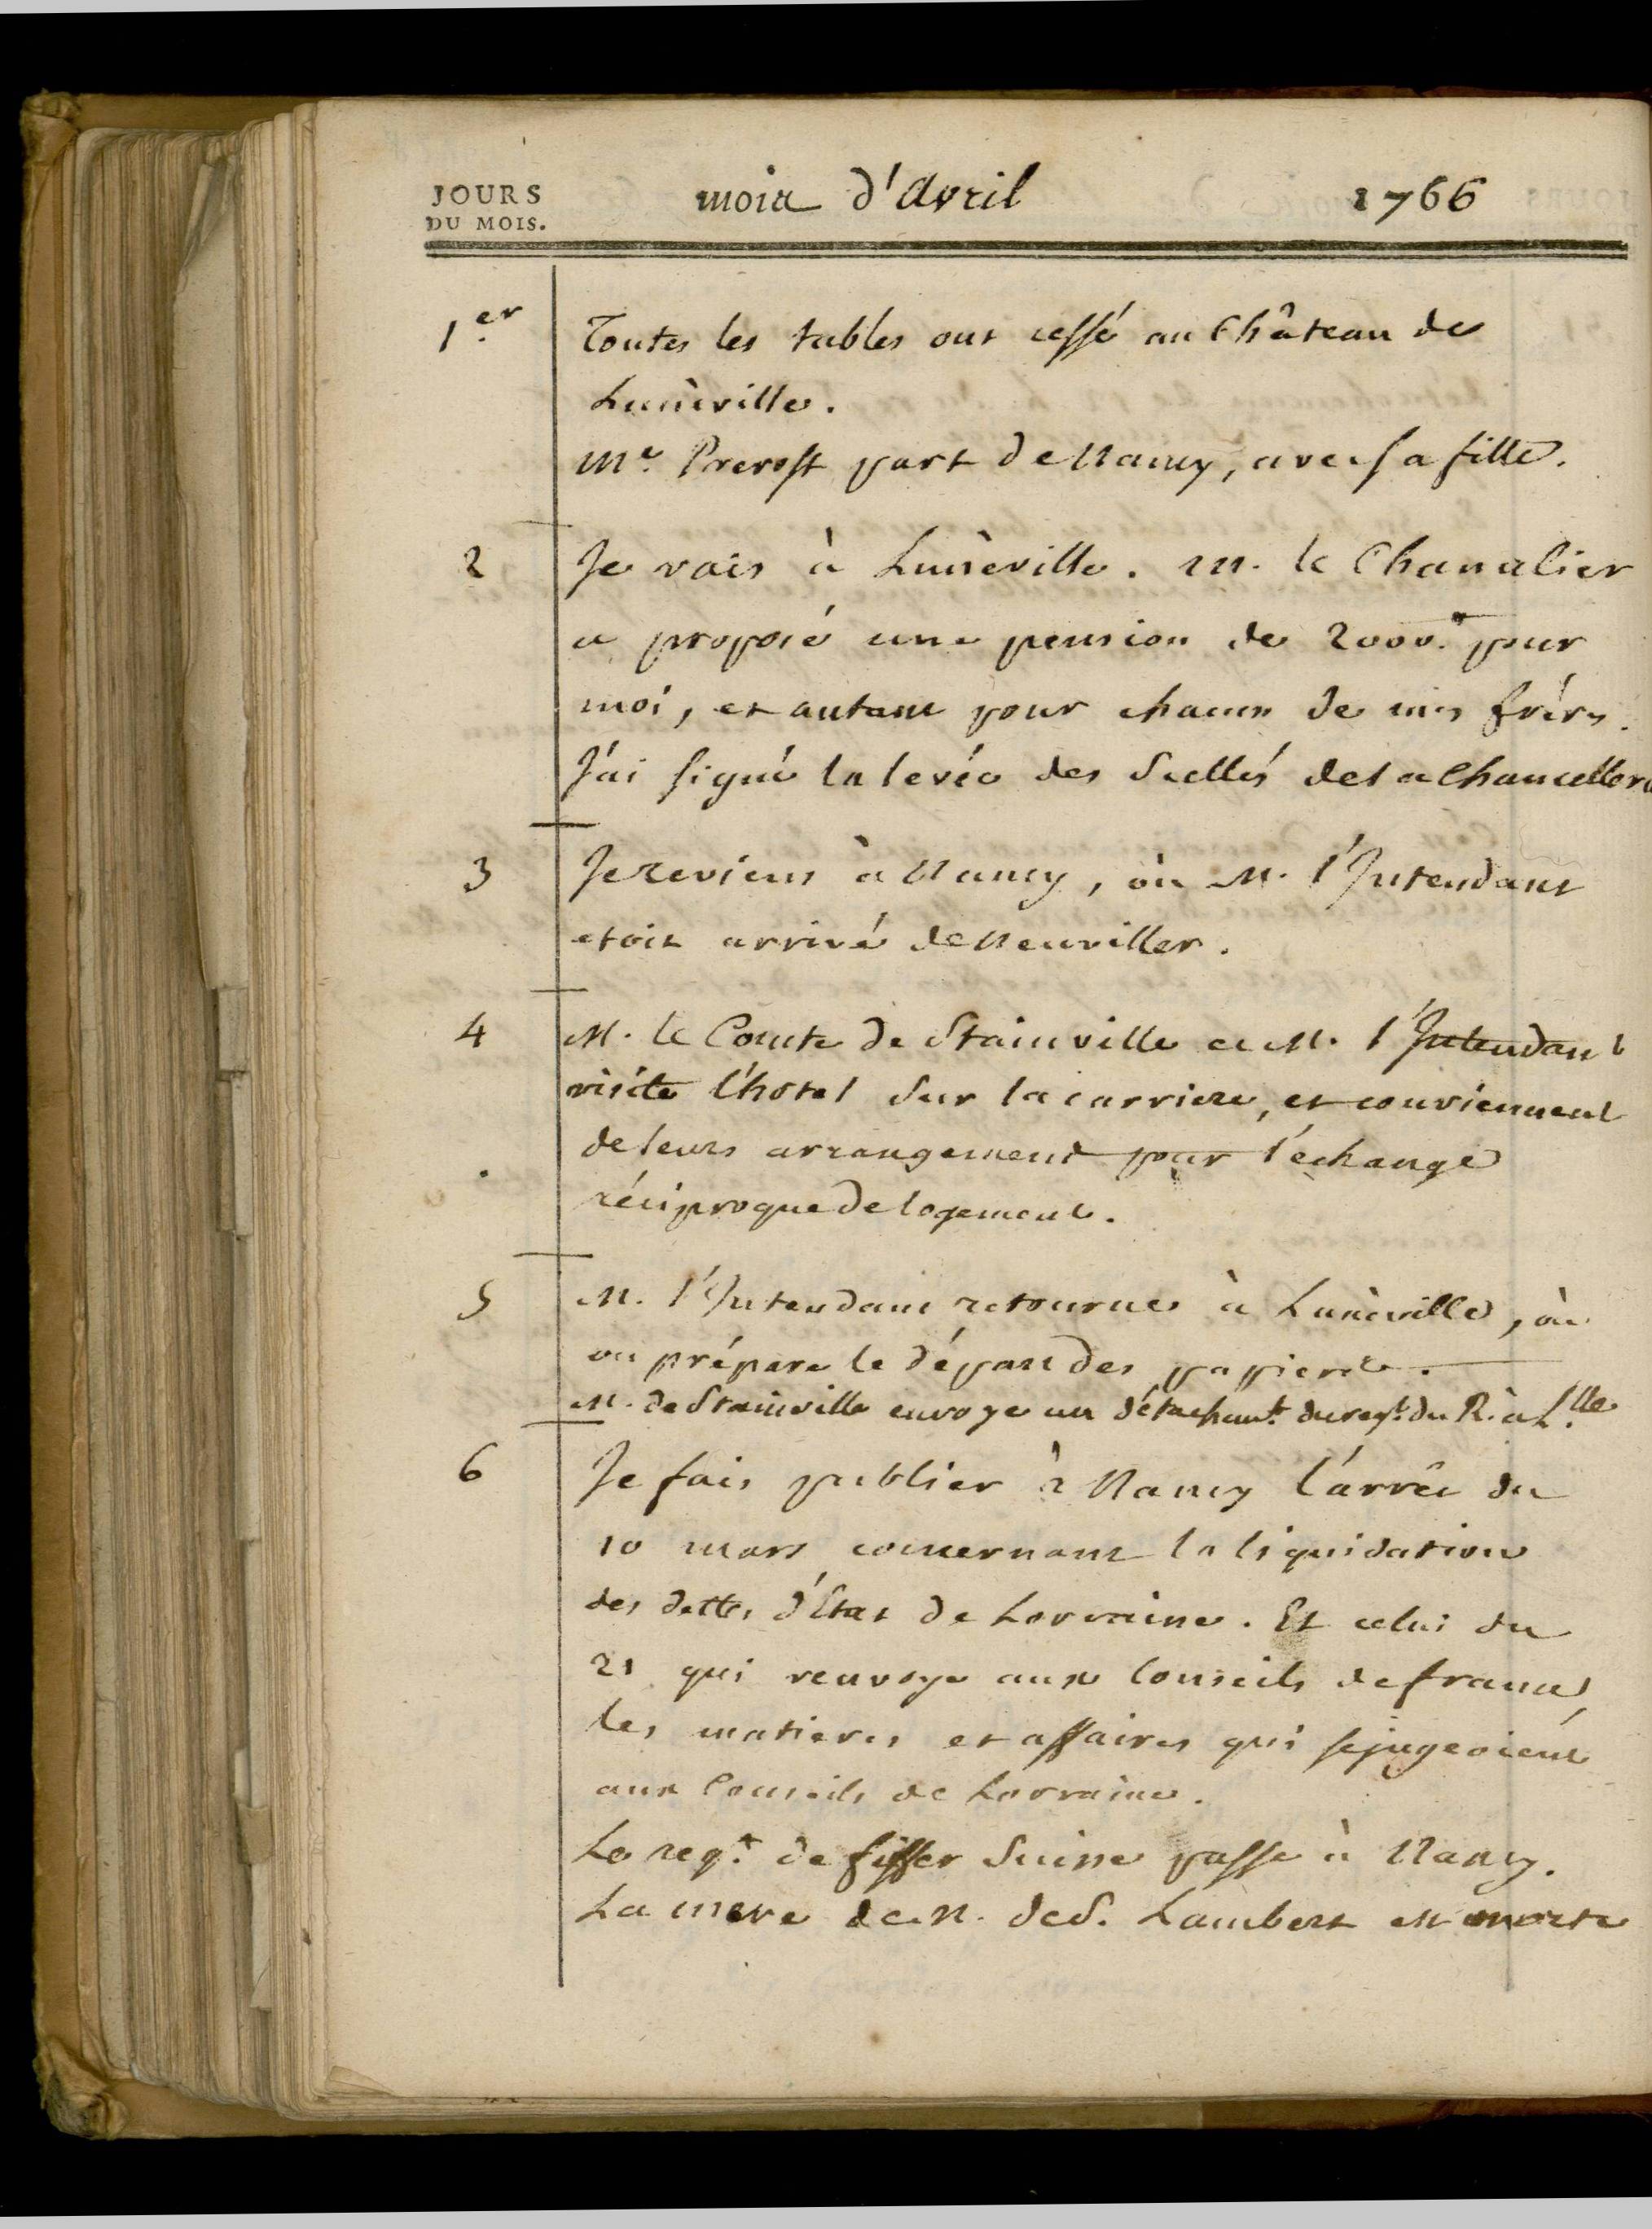 JOURS
DU MOIS.
mois d'Avril 1766
1.er
Toutes les tables ont cessé au Château de
Lunéville.
Mr. Prevost part de Nancy, avec sa fille.
2
Je vais à Lunéville. M. le Chancelier
a proposé une pension de 2000.# pour
moi, et autant pour chacun de mes fréres.
J'ai signé la levée des Scellés de la Chancellerie
3
Je reviens à Nancy, où M. l'Intendant
etoit arrivé de Neuviller.
4
M. le Comte de Stainville et M. l'Intendant
visite l'hotel sur la carriere, et conviennent
de leurs arrangement pour l'échange
réciproque de logement.
5
M. l'Intendant retourne à Lunéville, où
on prépare le départ des papiers.
M. de Stainville envoye un détachant. du regt. du R. à L.lle
6
Je fais publier à Nancy l'arrêt du
10 mars concernant la liquidation
des dettes d'Etat de Lorraine. Et celui du
21 qui renvoye aux Conseils de france,
les matieres et affaires qui se jugeoient
aux Conseils de Lorraine.
Le regt. de fiffer Suisse passe à Nancy.
La mere de M. de S. Lambert est morte